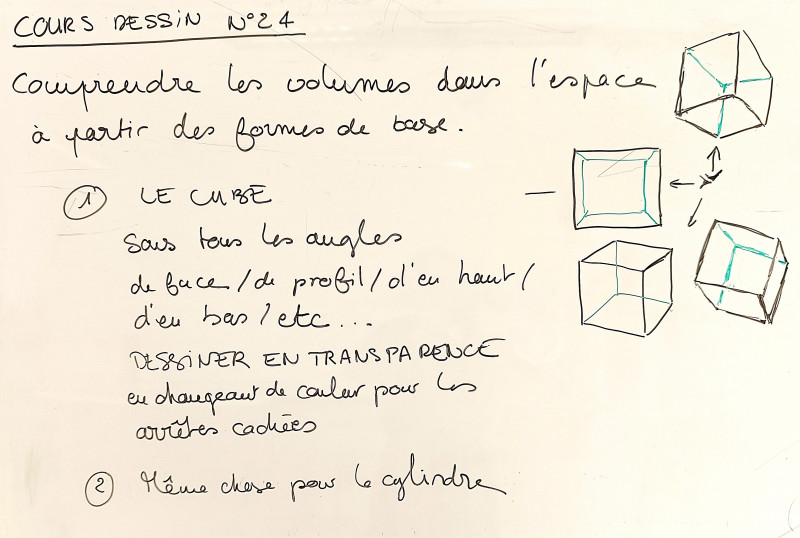 COURS DESSIN N°24
Comprendre les volumes dans l'espace
à partir des formes de base.
1 LE CUBE
Sous tous les angles
de face / de profil / d'en haut /
d'en bas / etc...
DESSINER EN TRANSPARENCE
en changeant de couleur pour les
arrêtes cachées
2 Même chose pour le cylindre